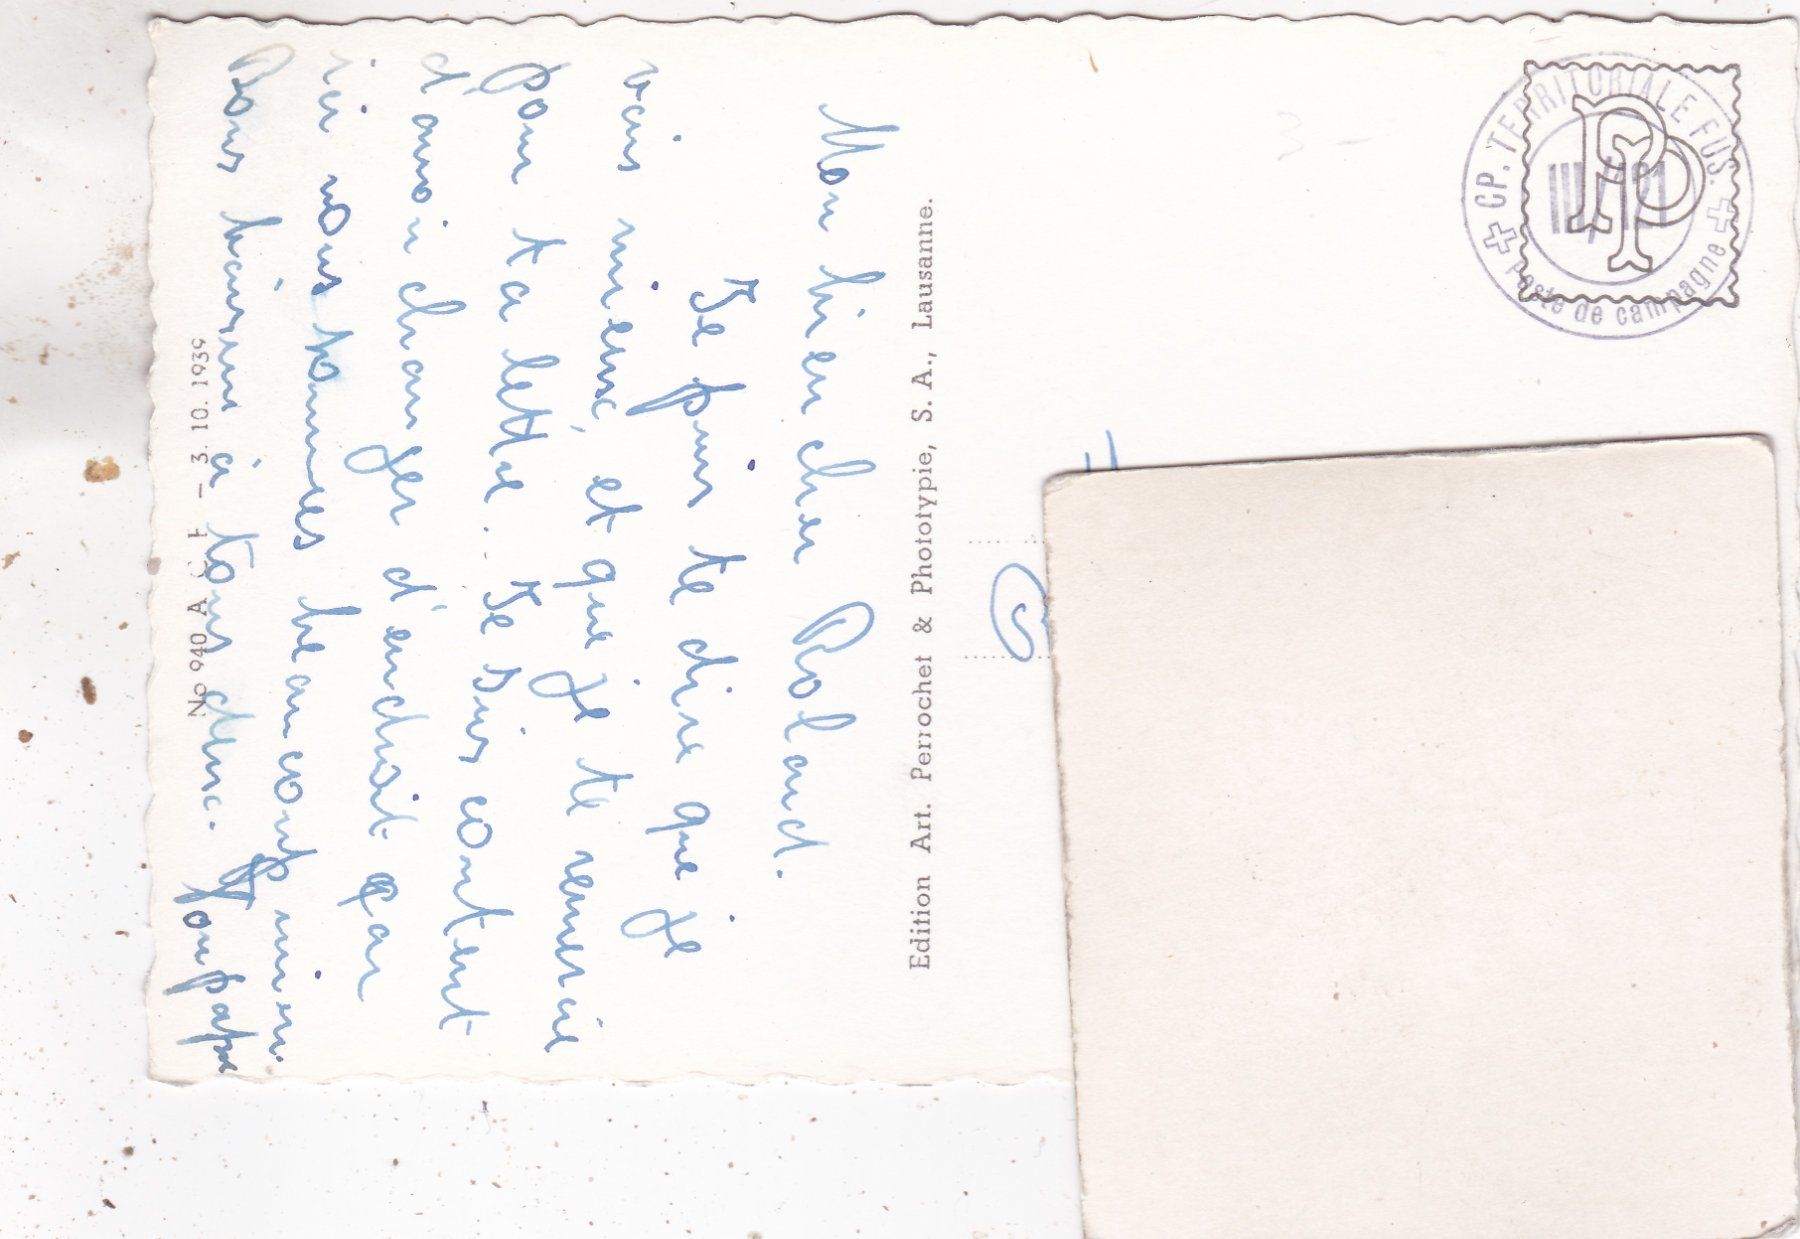 Mon bien cher Roland.
Je puis te dire que je
vais mieux, et que je te remercie
pour ta lettre. Je suis content
d'avoir changer d'endroit car
ici nous sommes beaucoup mieu.
Bons baisers à tous deux. Ton papa
No 940 A C F - 3. 10. 1939
Edition Art. Perrochet & Phototypie, S. A., Lausanne.
CP. TERRITORIALE FUS.
III/121
poste de campagne
PP